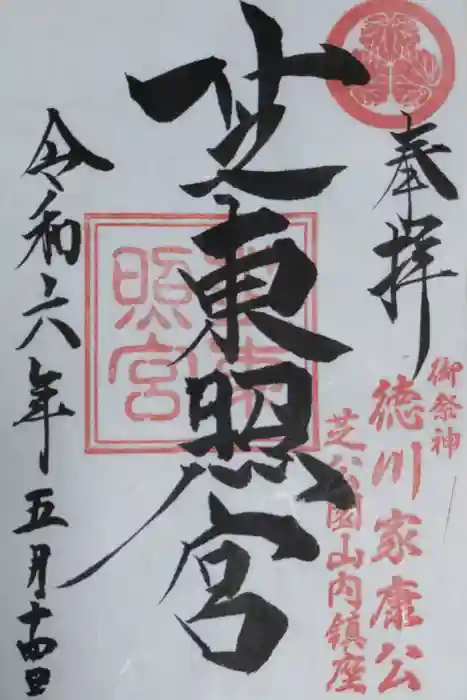 奉拝
御祭神
徳川家康公
芝公園山内鎮座
芝東照宮
芝東照宮
令和六年五月十四日